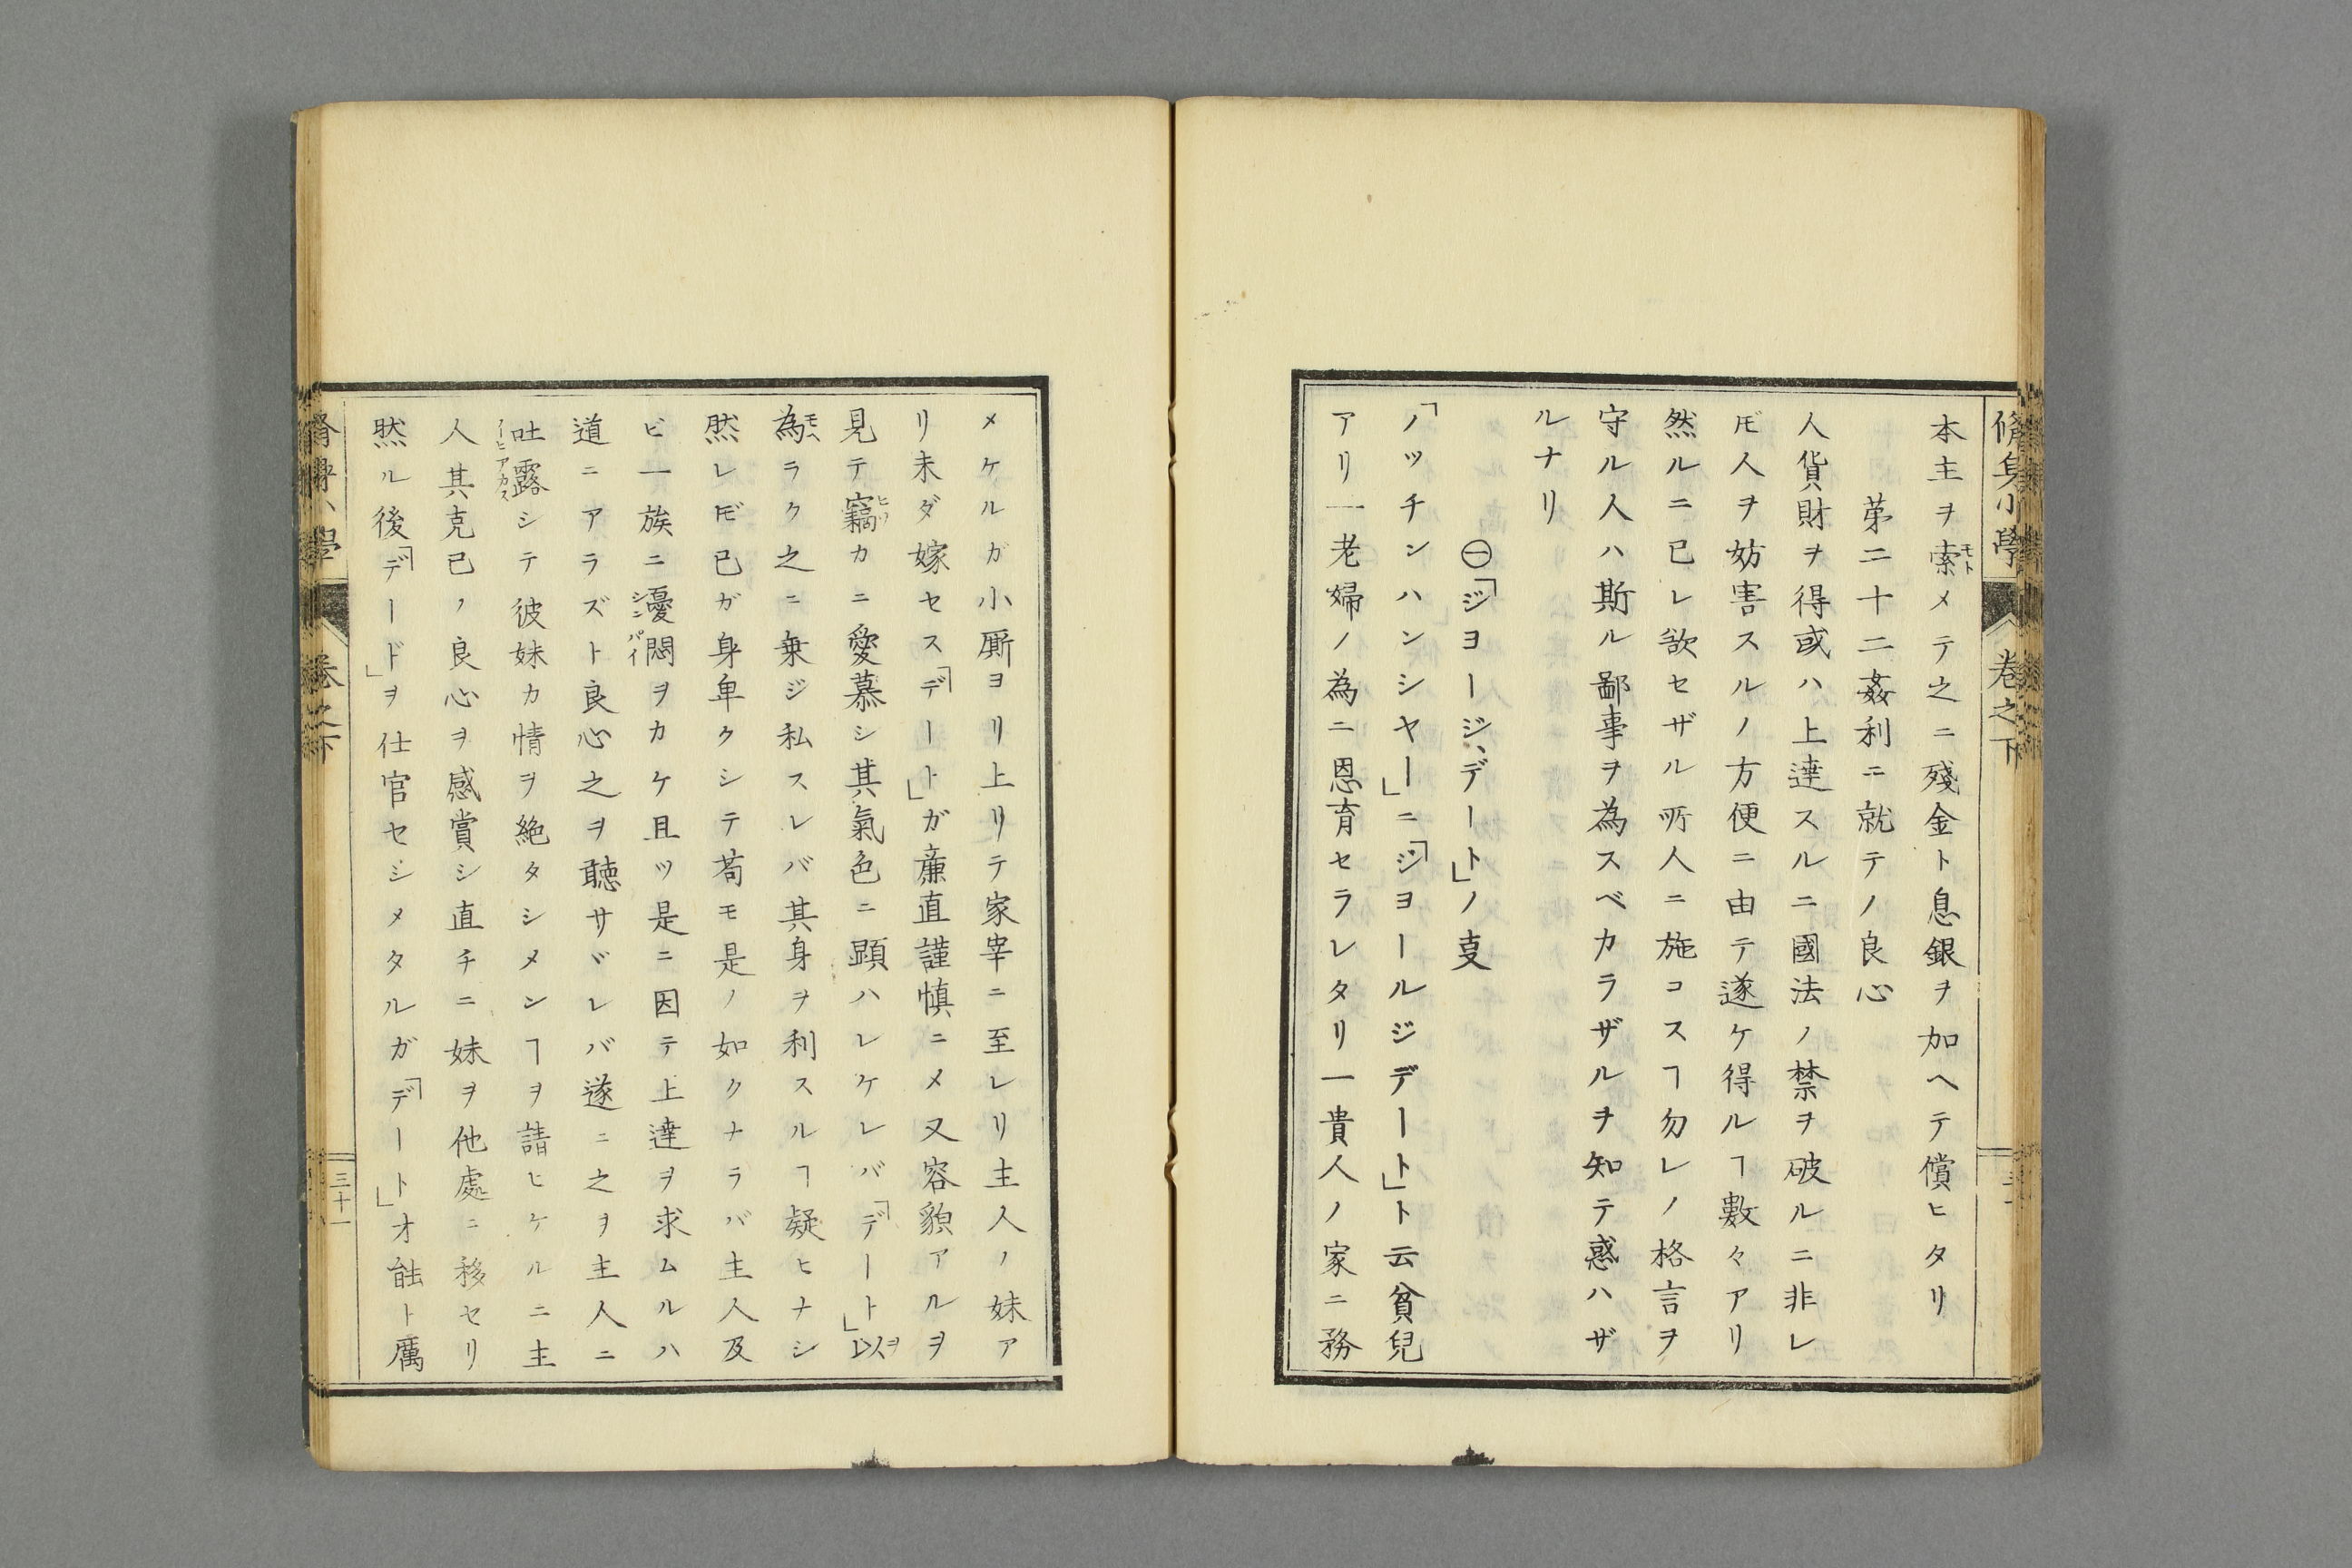 脩身小學 卷之下
本主ヲ索メテ之ニ殘金ト息銀ヲ加ヘテ償ヒタリ
第二十二姦利ニ就テノ良心
人貨財ヲ得或ハ上達スルニ國法ノ禁ヲ破ルニ非レ
𪜈人ヲ妨害スルノ方便ニ由テ遂ケ得ルヿ數々アリ
然ルニ已レ欲セザル所人ニ施コスヿ勿レノ格言ヲ
守ル人ハ斯ル鄙事ヲ為スベカラザルヲ知テ惑ハザ
ルナリ
㊀「ジヨージ、デート」ノ㕝
「ノッチンハンシヤー」ニ「ジヨールジデート」ト云貧兒
アリ一老婦ノ為ニ恩育セラレタリ一貴人ノ家ニ務
メケルガ小厮ヨリ上リテ家宰ニ至レリ主人ノ妹ア
リ未ダ嫁セス「デート」ガ廉直謹慎ニメ又容貌アルヲ
見テ竊カニ愛慕シ其氣色ニ顕ハレケレバ「デート」以
為ラク之ニ乗ジ私スレバ其身ヲ利スルヿ疑ヒナシ
然レ𪜈已ガ身卑クシテ苟モ是ノ如クナラバ主人及
ビ一族ニ憂悶ヲカケ且ツ是ニ因テ上達ヲ求ムルハ
道ニアラズト良心之ヲ聴サヾレバ遂ニ之ヲ主人ニ
吐露シテ彼妹カ情ヲ絶タシメンヿヲ請ヒケルニ主
人其克已ノ良心ヲ感賞シ直チニ妹ヲ他處ニ移セリ
然ル後「デード」ヲ仕官セシメタルガ「デート」才能ト厲
三十一